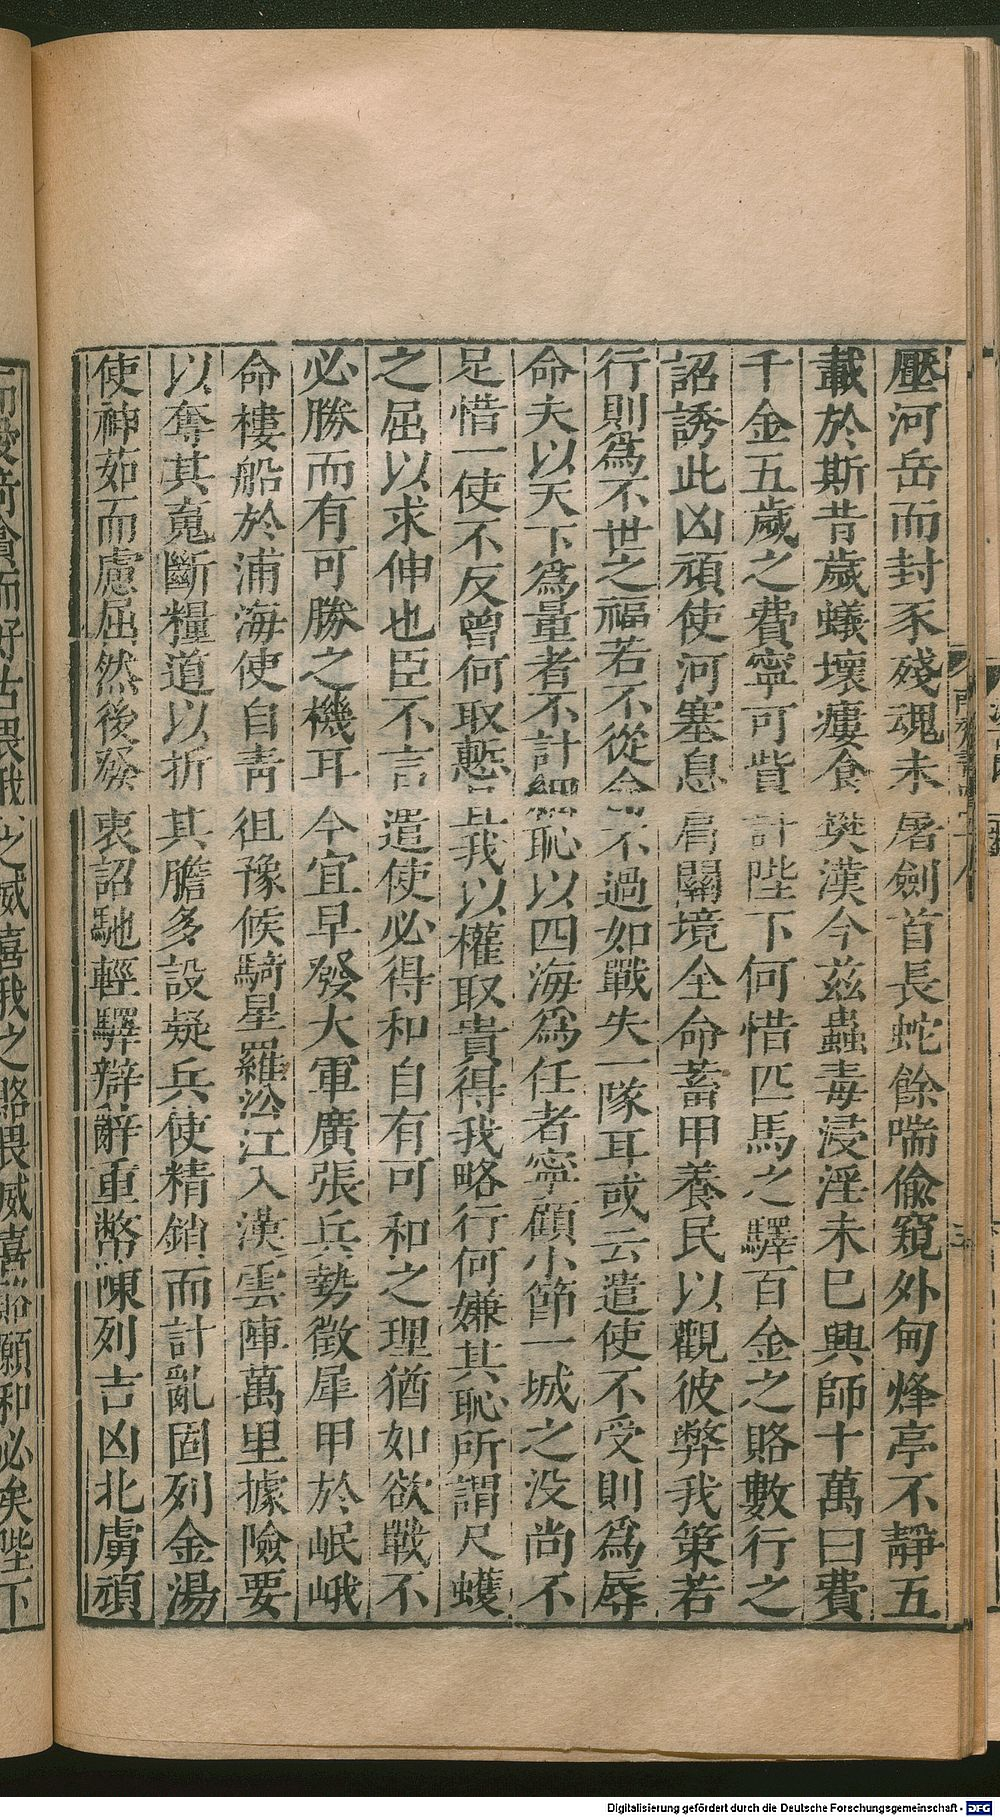 壓河岳而封豕殘魂未屠劍首長蛇餘喘偷窺外甸烽亭不靜五
載於斯昔歲蟻壞瘻食樊漢今茲蟲毒浸淫未已興師十萬日費
千金五歲之費寧可貲計陛下何惜匹馬之驛百金之賂數行之
詔誘此凶頑使河塞息肩關境全命蓄甲養民以觀彼弊我策若
行則爲不世之福若不從命不過如戰失一隊耳或云遣使不受則爲辱
命夫以天下爲量者不計細恥以四海爲任者寧顧小節一城之没尚不
足惜一使不反曾何取慙且我以權取貴得我略行何嫌其恥所謂尺蠖
之屈以求伸也臣不言遣使必得和自有可和之理猶如欲戰不
必勝而有可勝之機耳今宜早發大軍廣張兵勢徵犀甲於岷峨
命樓船於浦海使自青徂豫候騎星羅沿江入漢雲陣萬里據險要
以奪其䰟斷糧道以折其膽多設疑兵使精銷而計亂固列金湯
使神茹而慮屈然後發衷詔馳輕驛辯辭重幣陳列吉凶北虜頑
而愛奇貪而好古畏我之威喜我之賂畏威喜賂願和必矣陛下
Digitalisierung gefördert durch die Deutsche Forschungsgemeinschaft - DFG